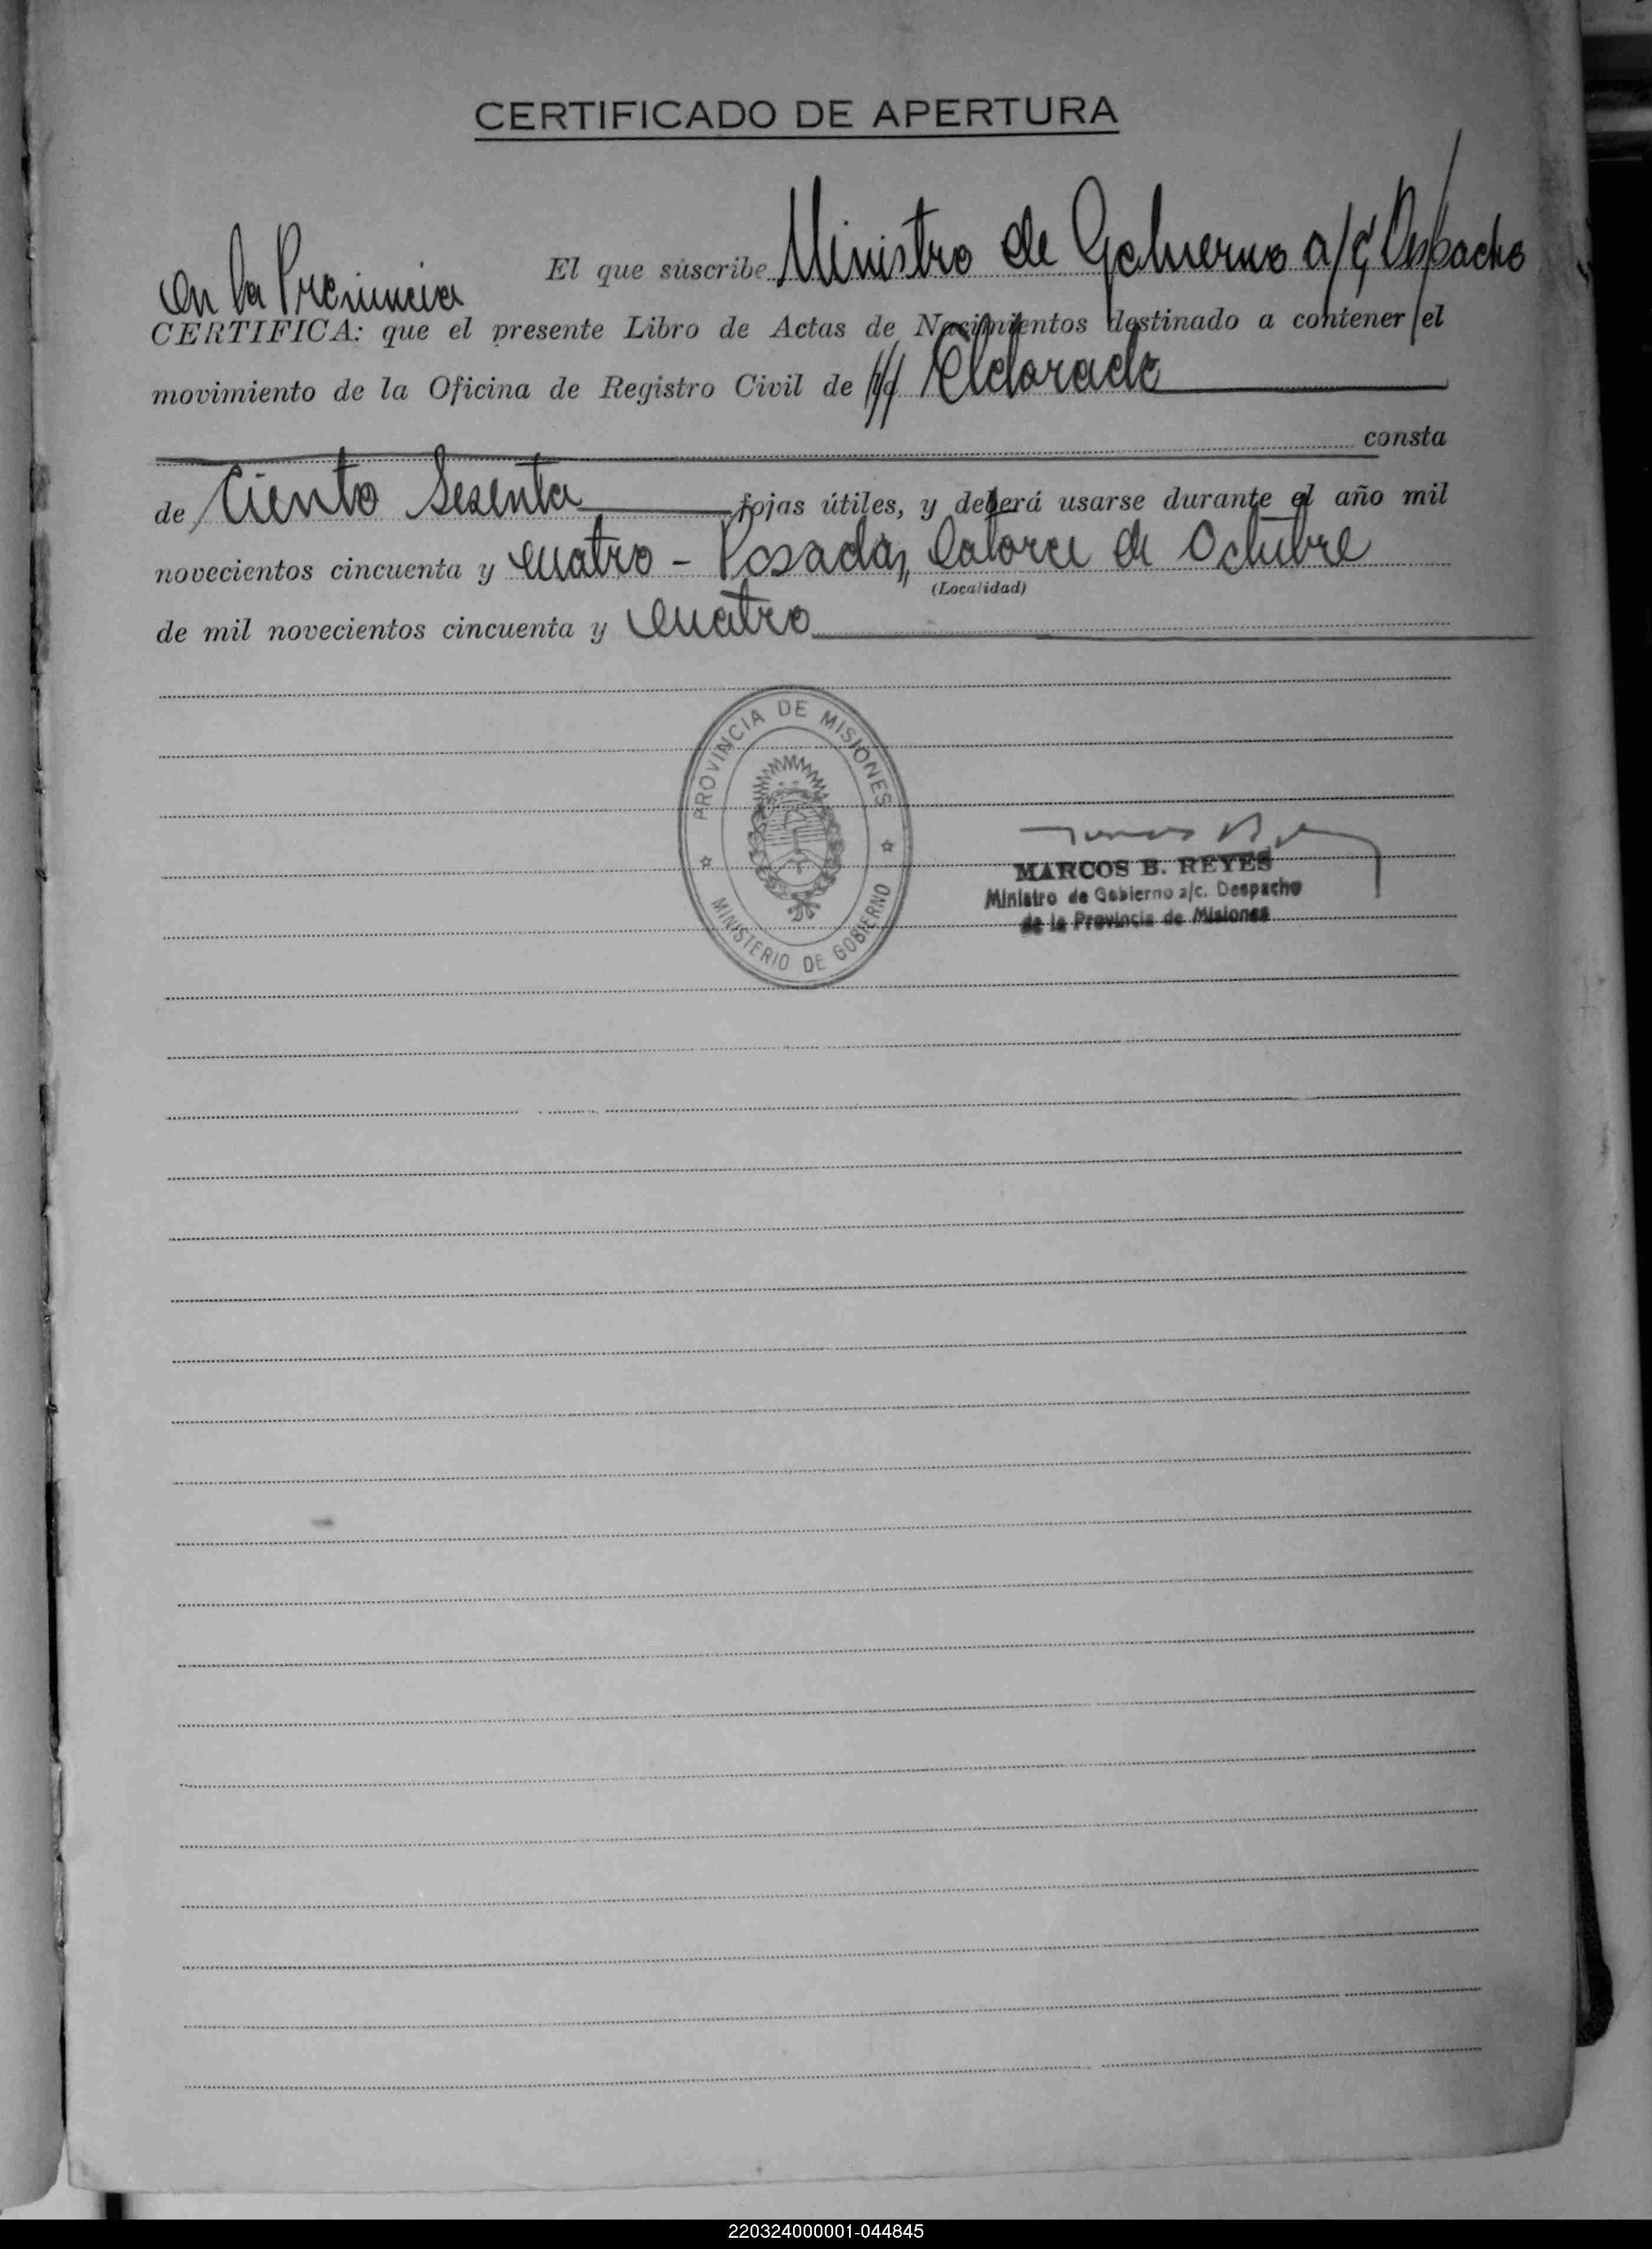 CERTIFICADO DE APERTURA
El que suscribe Ministro de Gobierno a/c Despacho
en la Provincia
CERTIFICA: que el presente Libro de Actas de Nacimientos destinado a contener el
movimiento de la Oficina de Registro Civil de Eldorado
consta
de Ciento Sesenta fojas útiles, y deberá usarse durante el año mil
novecientos cincuenta y cuatro - Posadas, Catorce de Octubre
(Localidad)
de mil novecientos cincuenta y cuatro
PROVINCIA DE MISIONES
MINISTERIO DE GOBIERNO
MARCOS B. REYES
Ministro de Gobierno a/c. Despacho
de la Provincia de Misiones
220324000001-044845